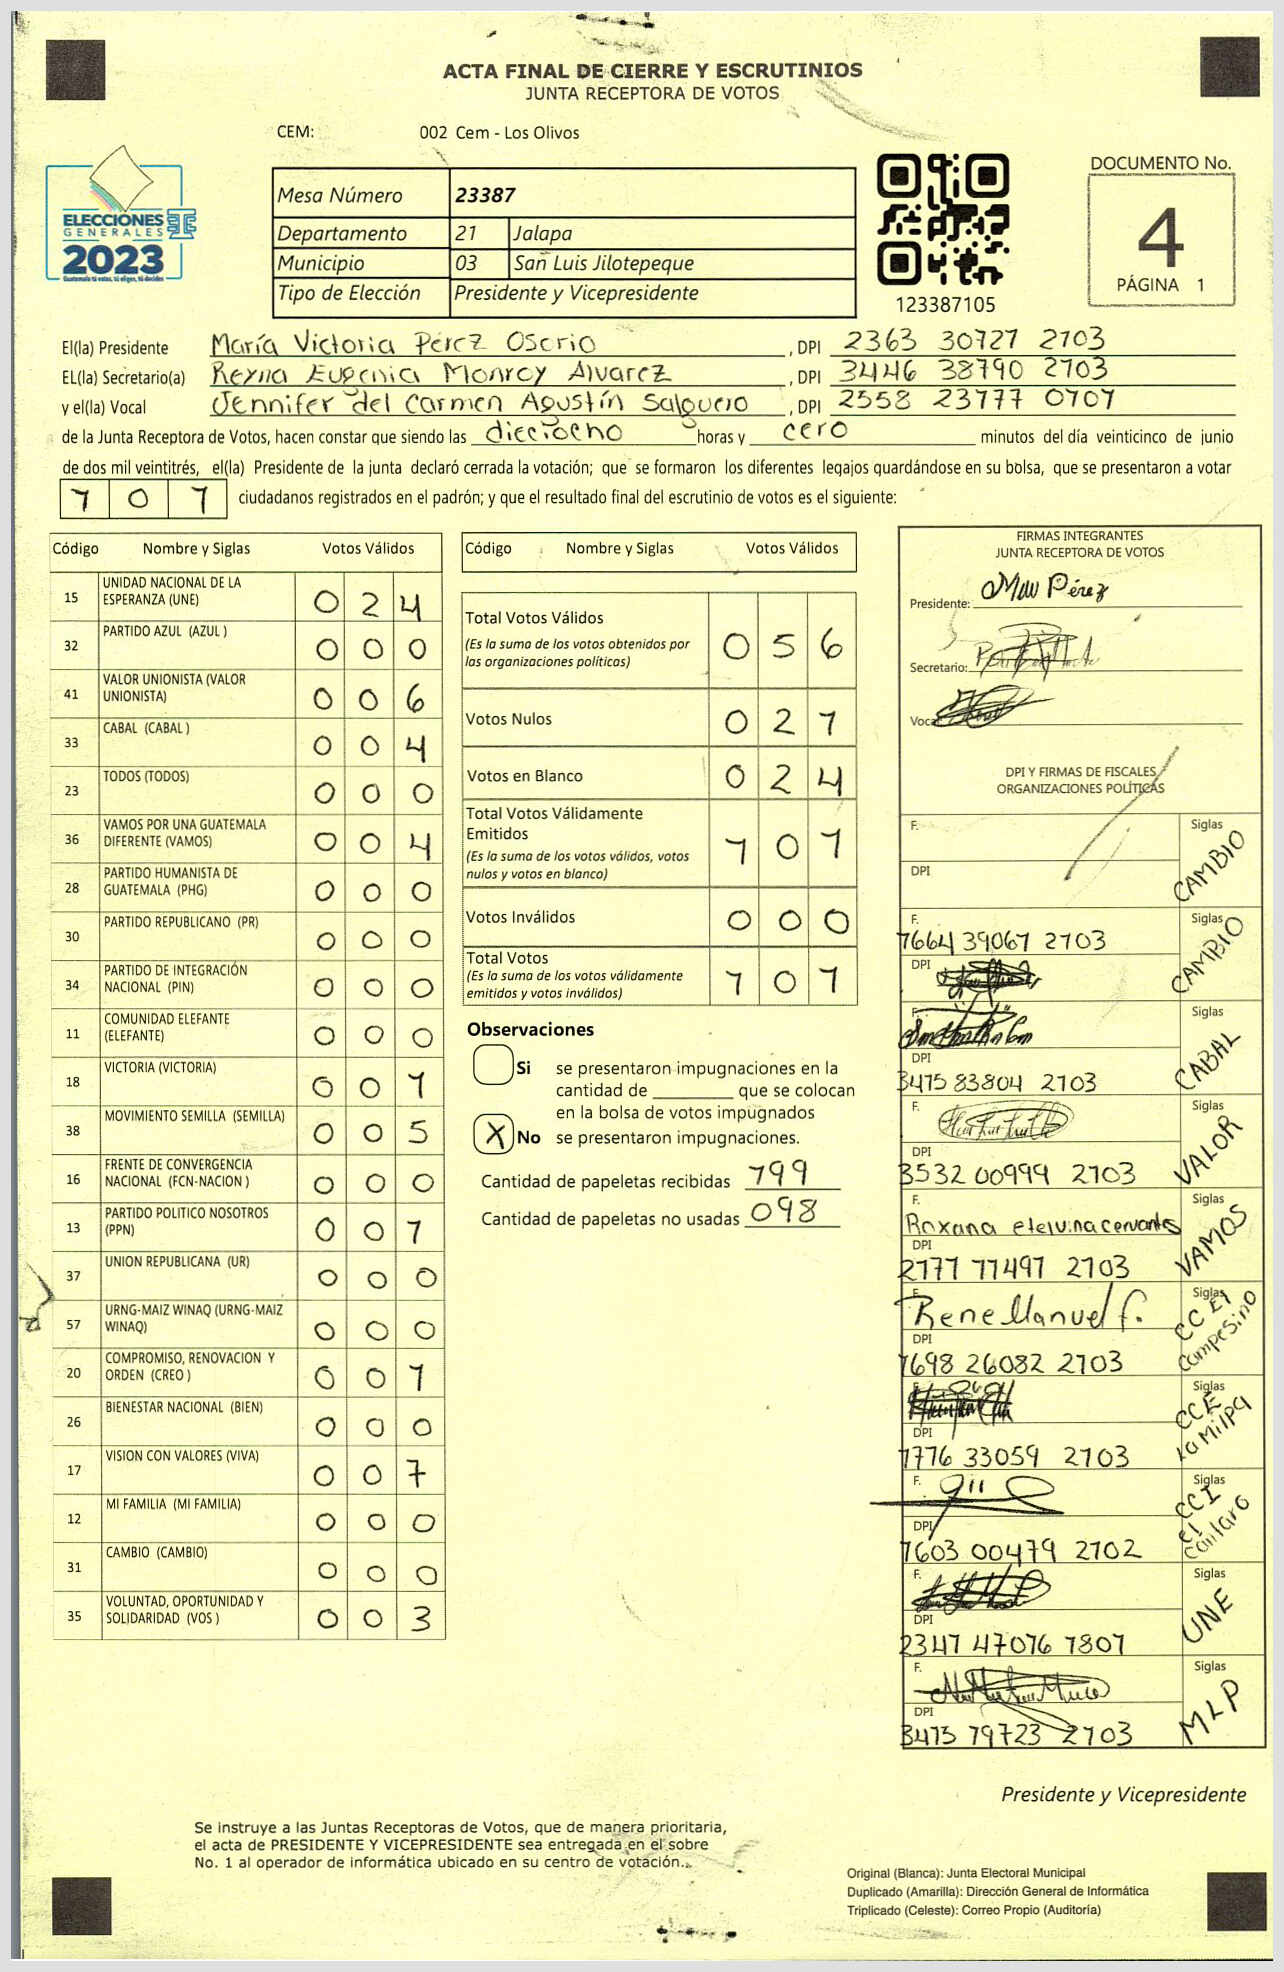 ACTA FINAL DE CIERRE Y ESCRUTINIOS
JUNTA RECEPTORA DE VOTOS
CEM: 002 Cem - Los Olivos
ELECCIONES
GENERALES
2023
Guatemala tú votas, tú eliges, tú decides
Mesa Número 23387
Departamento 21 Jalapa
Municipio 03 San Luis Jilotepeque
Tipo de Elección Presidente y Vicepresidente
123387105
DOCUMENTO No.
4
PÁGINA 1
El(la) Presidente María Victoria Pérez Osorio , DPI 2363 30121 2103
EL(la) Secretario(a) Reyna Eugenia Monroy Alvarez , DPI 3446 38190 2103
y el(la) Vocal Jennifer del Carmen Agustín Salguero , DPI 2558 23111 0101
de la Junta Receptora de Votos, hacen constar que siendo las dieciocho horas y cero minutos del día veinticinco de junio
de dos mil veintitrés, el(la) Presidente de la junta declaró cerrada la votación; que se formaron los diferentes legajos guardándose en su bolsa, que se presentaron a votar
1 0 1 ciudadanos registrados en el padrón; y que el resultado final del escrutinio de votos es el siguiente:
Código Nombre y Siglas Votos Válidos
15 UNIDAD NACIONAL DE LA ESPERANZA (UNE) 0 2 4
32 PARTIDO AZUL (AZUL ) 0 0 0
41 VALOR UNIONISTA (VALOR UNIONISTA) 0 0 6
33 CABAL (CABAL ) 0 0 4
23 TODOS (TODOS) 0 0 0
36 VAMOS POR UNA GUATEMALA DIFERENTE (VAMOS) 0 0 4
28 PARTIDO HUMANISTA DE GUATEMALA (PHG) 0 0 0
30 PARTIDO REPUBLICANO (PR) 0 0 0
34 PARTIDO DE INTEGRACIÓN NACIONAL (PIN) 0 0 0
11 COMUNIDAD ELEFANTE (ELEFANTE) 0 0 0
18 VICTORIA (VICTORIA) 0 0 1
38 MOVIMIENTO SEMILLA (SEMILLA) 0 0 5
16 FRENTE DE CONVERGENCIA NACIONAL (FCN-NACION ) 0 0 0
13 PARTIDO POLITICO NOSOTROS (PPN) 0 0 1
37 UNION REPUBLICANA (UR) 0 0 0
57 URNG-MAIZ WINAQ (URNG-MAIZ WINAQ) 0 0 0
20 COMPROMISO, RENOVACION Y ORDEN (CREO ) 0 0 1
26 BIENESTAR NACIONAL (BIEN) 0 0 0
17 VISION CON VALORES (VIVA) 0 0 7
12 MI FAMILIA (MI FAMILIA) 0 0 0
31 CAMBIO (CAMBIO) 0 0 0
35 VOLUNTAD, OPORTUNIDAD Y SOLIDARIDAD (VOS ) 0 0 3
Código Nombre y Siglas Votos Válidos
Total Votos Válidos 0 5 6
(Es la suma de los votos obtenidos por
las organizaciones políticas)
Votos Nulos 0 2 1
Votos en Blanco 0 2 4
Total Votos Válidamente
Emitidos 1 0 1
(Es la suma de los votos válidos, votos
nulos y votos en blanco)
Votos Inválidos 0 0 0
Total Votos 1 0 1
(Es la suma de los votos válidamente
emitidos y votos inválidos)
Observaciones
Si se presentaron impugnaciones en la
cantidad de ________ que se colocan
en la bolsa de votos impugnados
X No se presentaron impugnaciones.
Cantidad de papeletas recibidas 199
Cantidad de papeletas no usadas 098
FIRMAS INTEGRANTES
JUNTA RECEPTORA DE VOTOS
Presidente: Mav Pérez
Secretario:
Vocal
DPI Y FIRMAS DE FISCALES
ORGANIZACIONES POLÍTICAS
F. Siglas CAMBIO
DPI
F. Siglas CAMBIO
1664 39067 2103
DPI
F. Siglas CABAL
DPI
3475 83804 2103
F. Siglas VALOR
DPI
3532 00999 2103
F. Siglas VAMOS
Roxana etelvina cervantes
DPI
2103
F. Siglas CC El Campesino
Rene Manuel F.
DPI
1698 26082 2103
F. Siglas CCE La Milpa
DPI
1776 33059 2103
F. Siglas CCI El Cantaro
DPI
1603 00479 2102
F. Siglas UNE
DPI
2347 47076 1801
F. Siglas MLP
DPI
3475 79723 2103
Presidente y Vicepresidente
Se instruye a las Juntas Receptoras de Votos, que de manera prioritaria,
el acta de PRESIDENTE Y VICEPRESIDENTE sea entregada en el sobre
No. 1 al operador de informática ubicado en su centro de votación..
Original (Blanca): Junta Electoral Municipal
Duplicado (Amarilla): Dirección General de Informática
Triplicado (Celeste): Correo Propio (Auditoría)